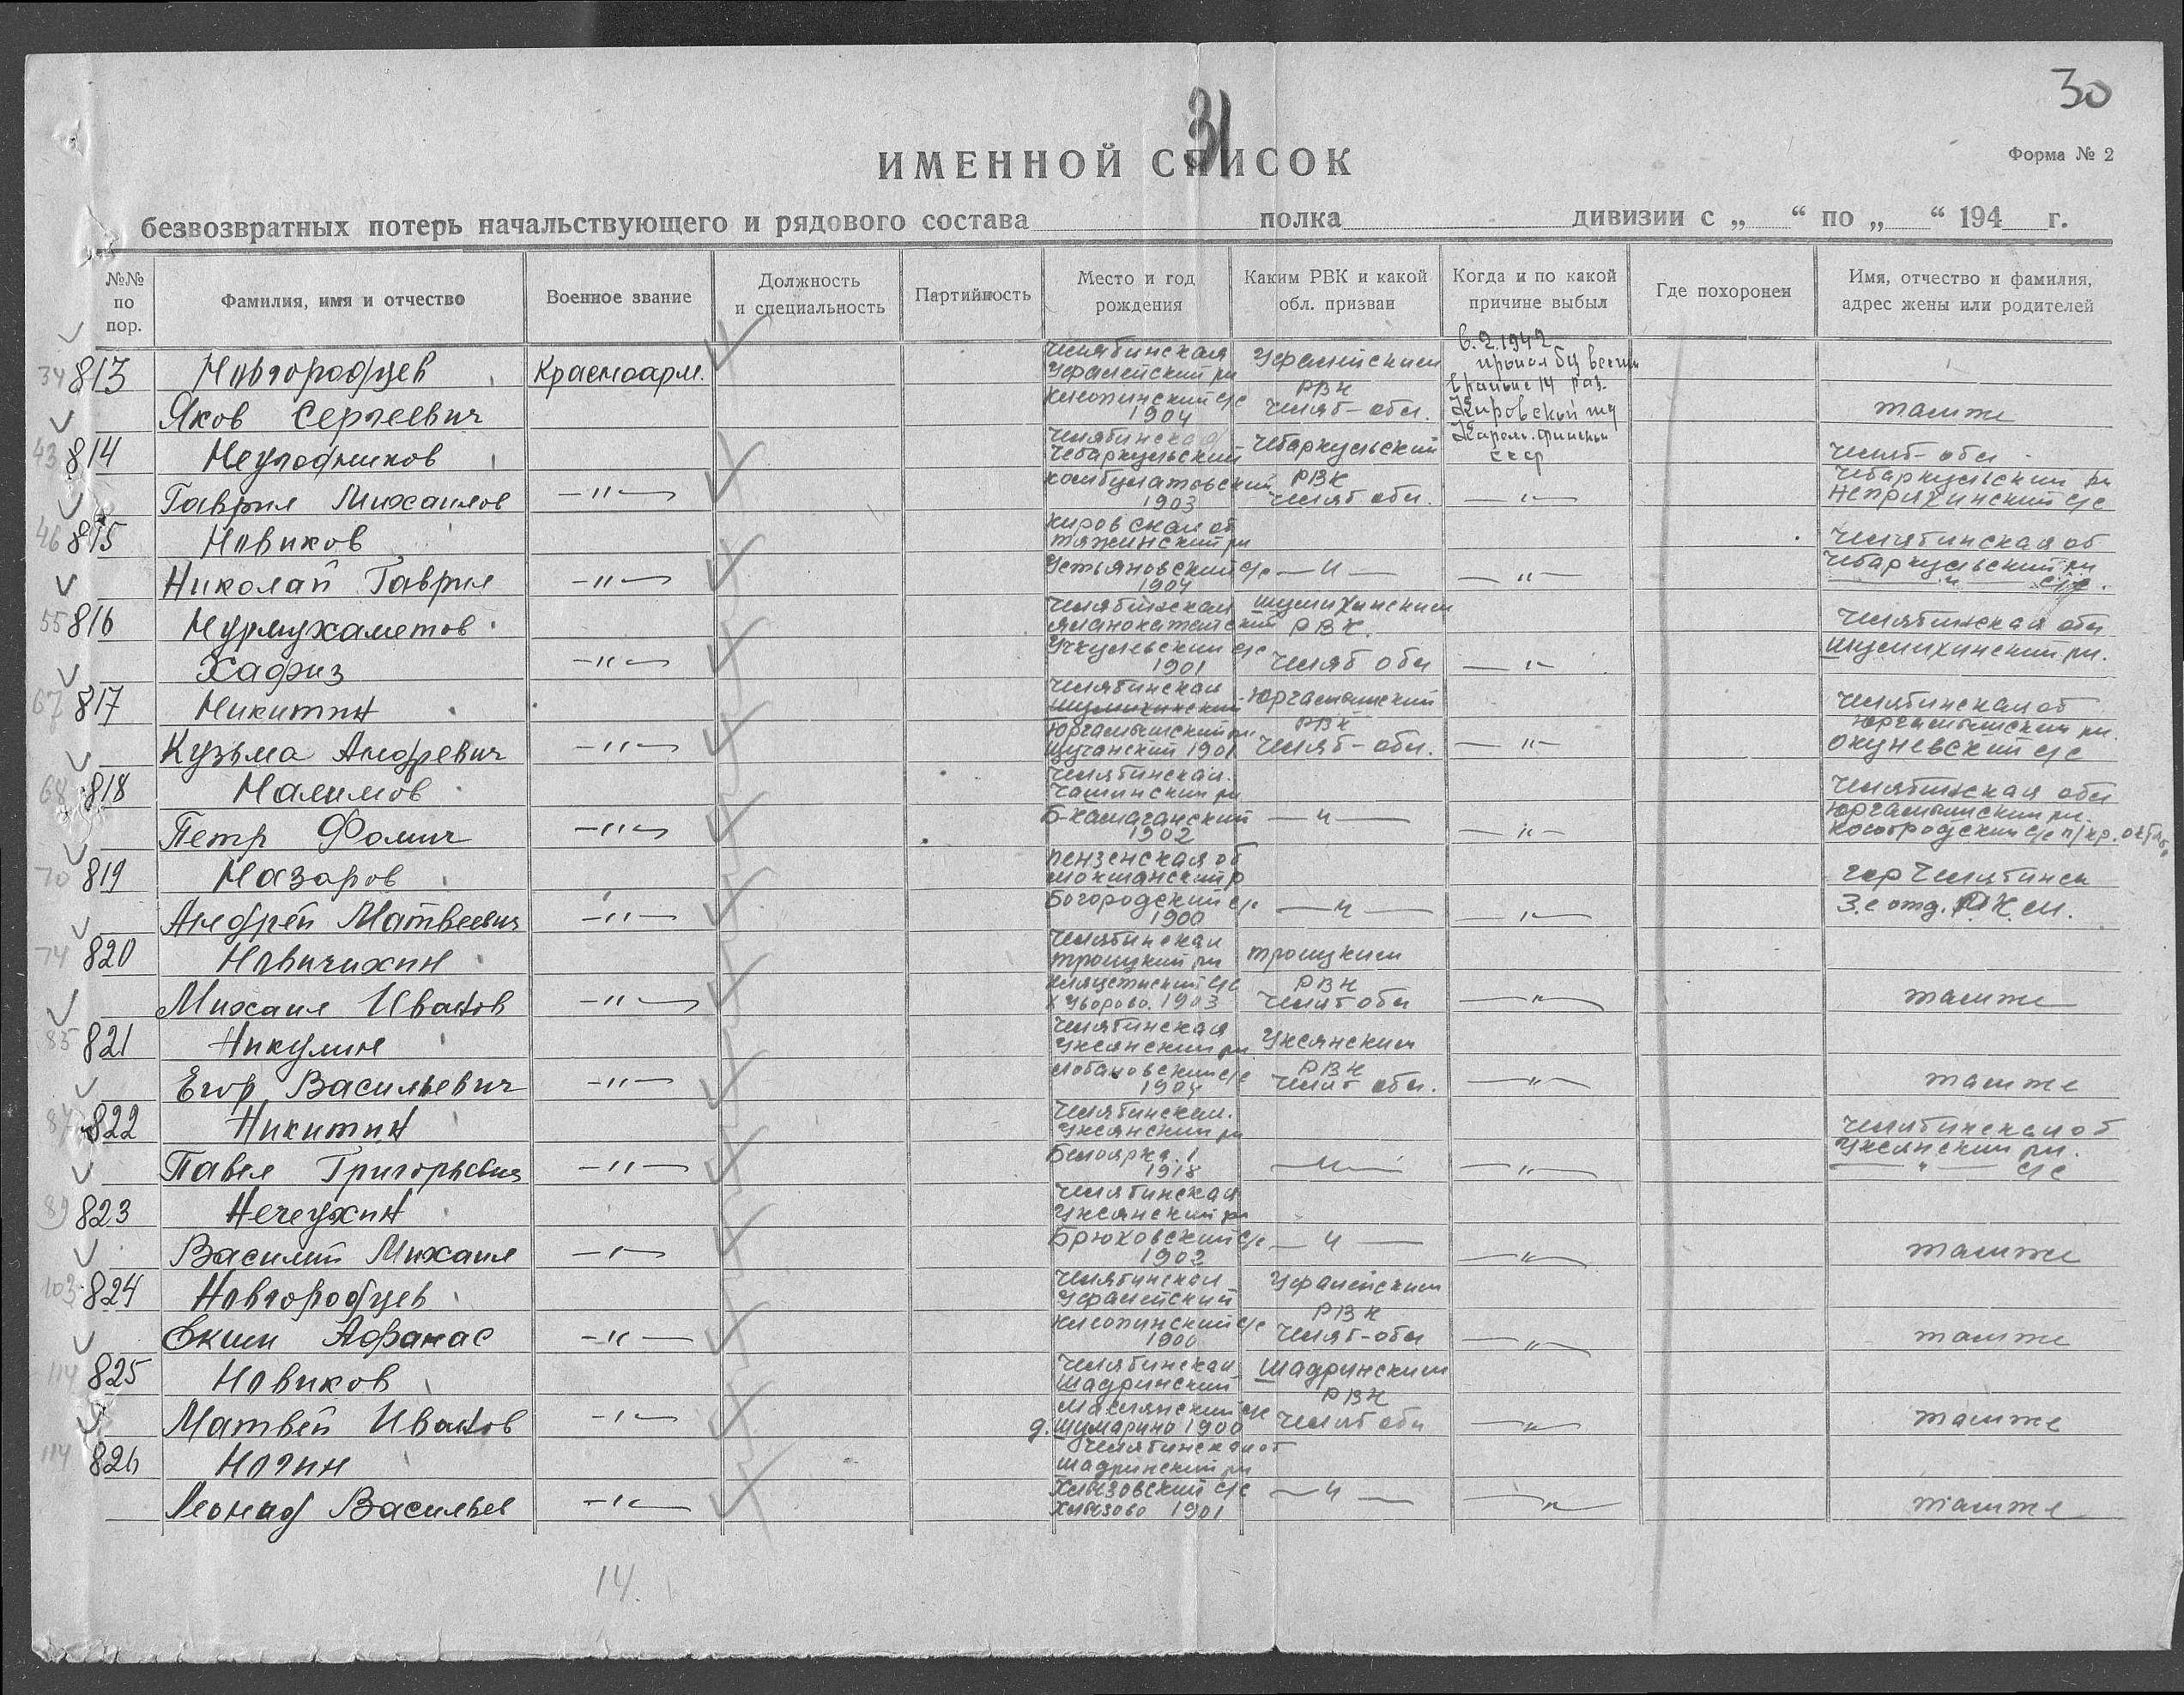 30
31
ИМЕННОЙ СПИСОК
Форма № 2
безвозвратных потерь начальствующего и рядового состава полка дивизии с „ “ по „ “ 194 г.
№№ по пор.
Фамилия, имя и отчество
Военное звание
Должность и специальность
Партийность
Место и год рождения
Каким РВК и какой обл. призван
Когда и по какой причине выбыл
Где похоронен
Имя, отчество и фамилия, адрес жены или родителей
34 813 Новгородцев Красноарм.
Яков Сергеевич
Челябинская
Уфалейский рн
1904
Уфалейским
РВК
Челяб-обл.
6.2.1942
пропал без вести
в районе 14 раз.
Кировской жд
Карело-финской
ССР
тамже
43 814 Неугодников
Гаврил Михайлов -"-
Челябинская
Чебаркульский
1903
Чебаркульский
РВК
Челяб обл.
-"-
Челяб-обл
Чебаркульский рн
Непряхинский с/с
46 815 Новиков
Николай Гаврил -"-
Кировская об
Тужинский рн
Устьяновский с/с
1904
-"-
-"-
Челябинская об
Чебаркульский рн
-"- с/с.
55 816 Нурмухаметов
Хафиз -"-
Челябинская
Яланокатайский
1901
Шумихинским
РВК.
Челяб обл
-"-
Челябинская обл
Шумихинский рн.
67 817 Никитин
Кузьма Андревич -"-
Челябинская
Шумихинский
Юргамышский рн
Щучанский 1901
Юргамышский
РВК
Челяб-обл.
-"-
Челябинская об
Юргамышский рн.
Окуневский с/с
68 818 Налимов
Петр Фомич -"-
Челябинская.
Чашинский рн
Б-Камаганский
1902
-"-
-"-
Челябинская обл
Юргамышский рн.
70 819 Назаров
Андрей Матвеевич -"-
Пензенская об
Мокшанский р
Богородский с/с
1900
-"-
-"-
гор Челябинск
74 820 Новичихин
Михаил Иванов -"-
Челябинская
Троицкий рн
Клястицкий с/с
1903
Троицким
РВК
Челяб обл
-"-
тамже
85 821 Никулин
Егор Васильевич -"-
Челябинская
Уксянский рн
Лобановский с/с
1904
Уксянским
РВК
Челяб обл.
-"-
тамже
87 822 Никитин
Павел Григорьевич -"-
Челябинская.
Уксянский рн
Белоярка. 1
1918
-"-
-"-
Челябинская об
Уксянский рн.
-"- с/с
89 823 Нечеухин
Василий Михаил -"-
Челябинская
Уксянский рн
Брюховский с/с
1902
-"-
-"-
тамже
103 824 Новгородцев
Еким Афанас -"-
Челябинская
Уфалейский
1900
Уфалейским
РВК
Челяб-обл
-"-
тамже
114 825 Новиков
Матвей Иванов -"-
Челябинская
Шадринский
Маслянский с/с
д. Шумарино 1900
Шадринским
РВК
Челяб обл
-"-
тамже
114 826 Ногин
Леонад Васильев -"-
Челябинская об
Шадринский рн
Хлызовский с/с
Хлызово 1901
-"-
-"-
тамже
14.